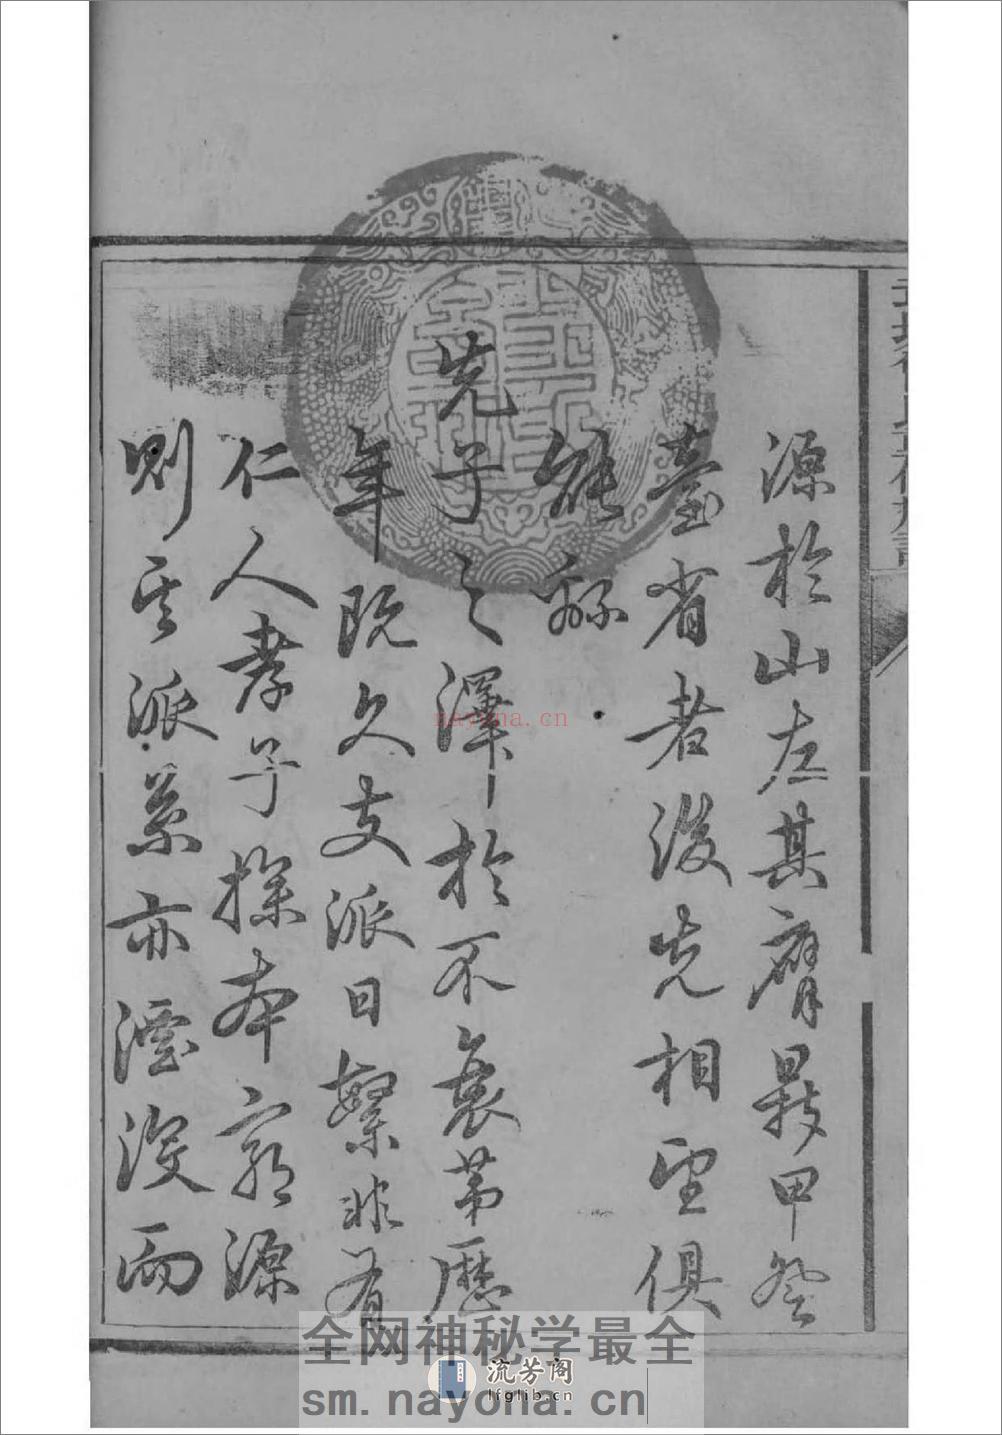 源於山左其膺最甲登
臺省者後先相望俱
能綿
先子之澤於不衰第歷
年既久支派日繁非有
仁人孝子探本窮源
則其派系亦湮沒而
nayona.cn
全网神秘学最全
流芳阁
lfglib.cn
sm.nayona.cn